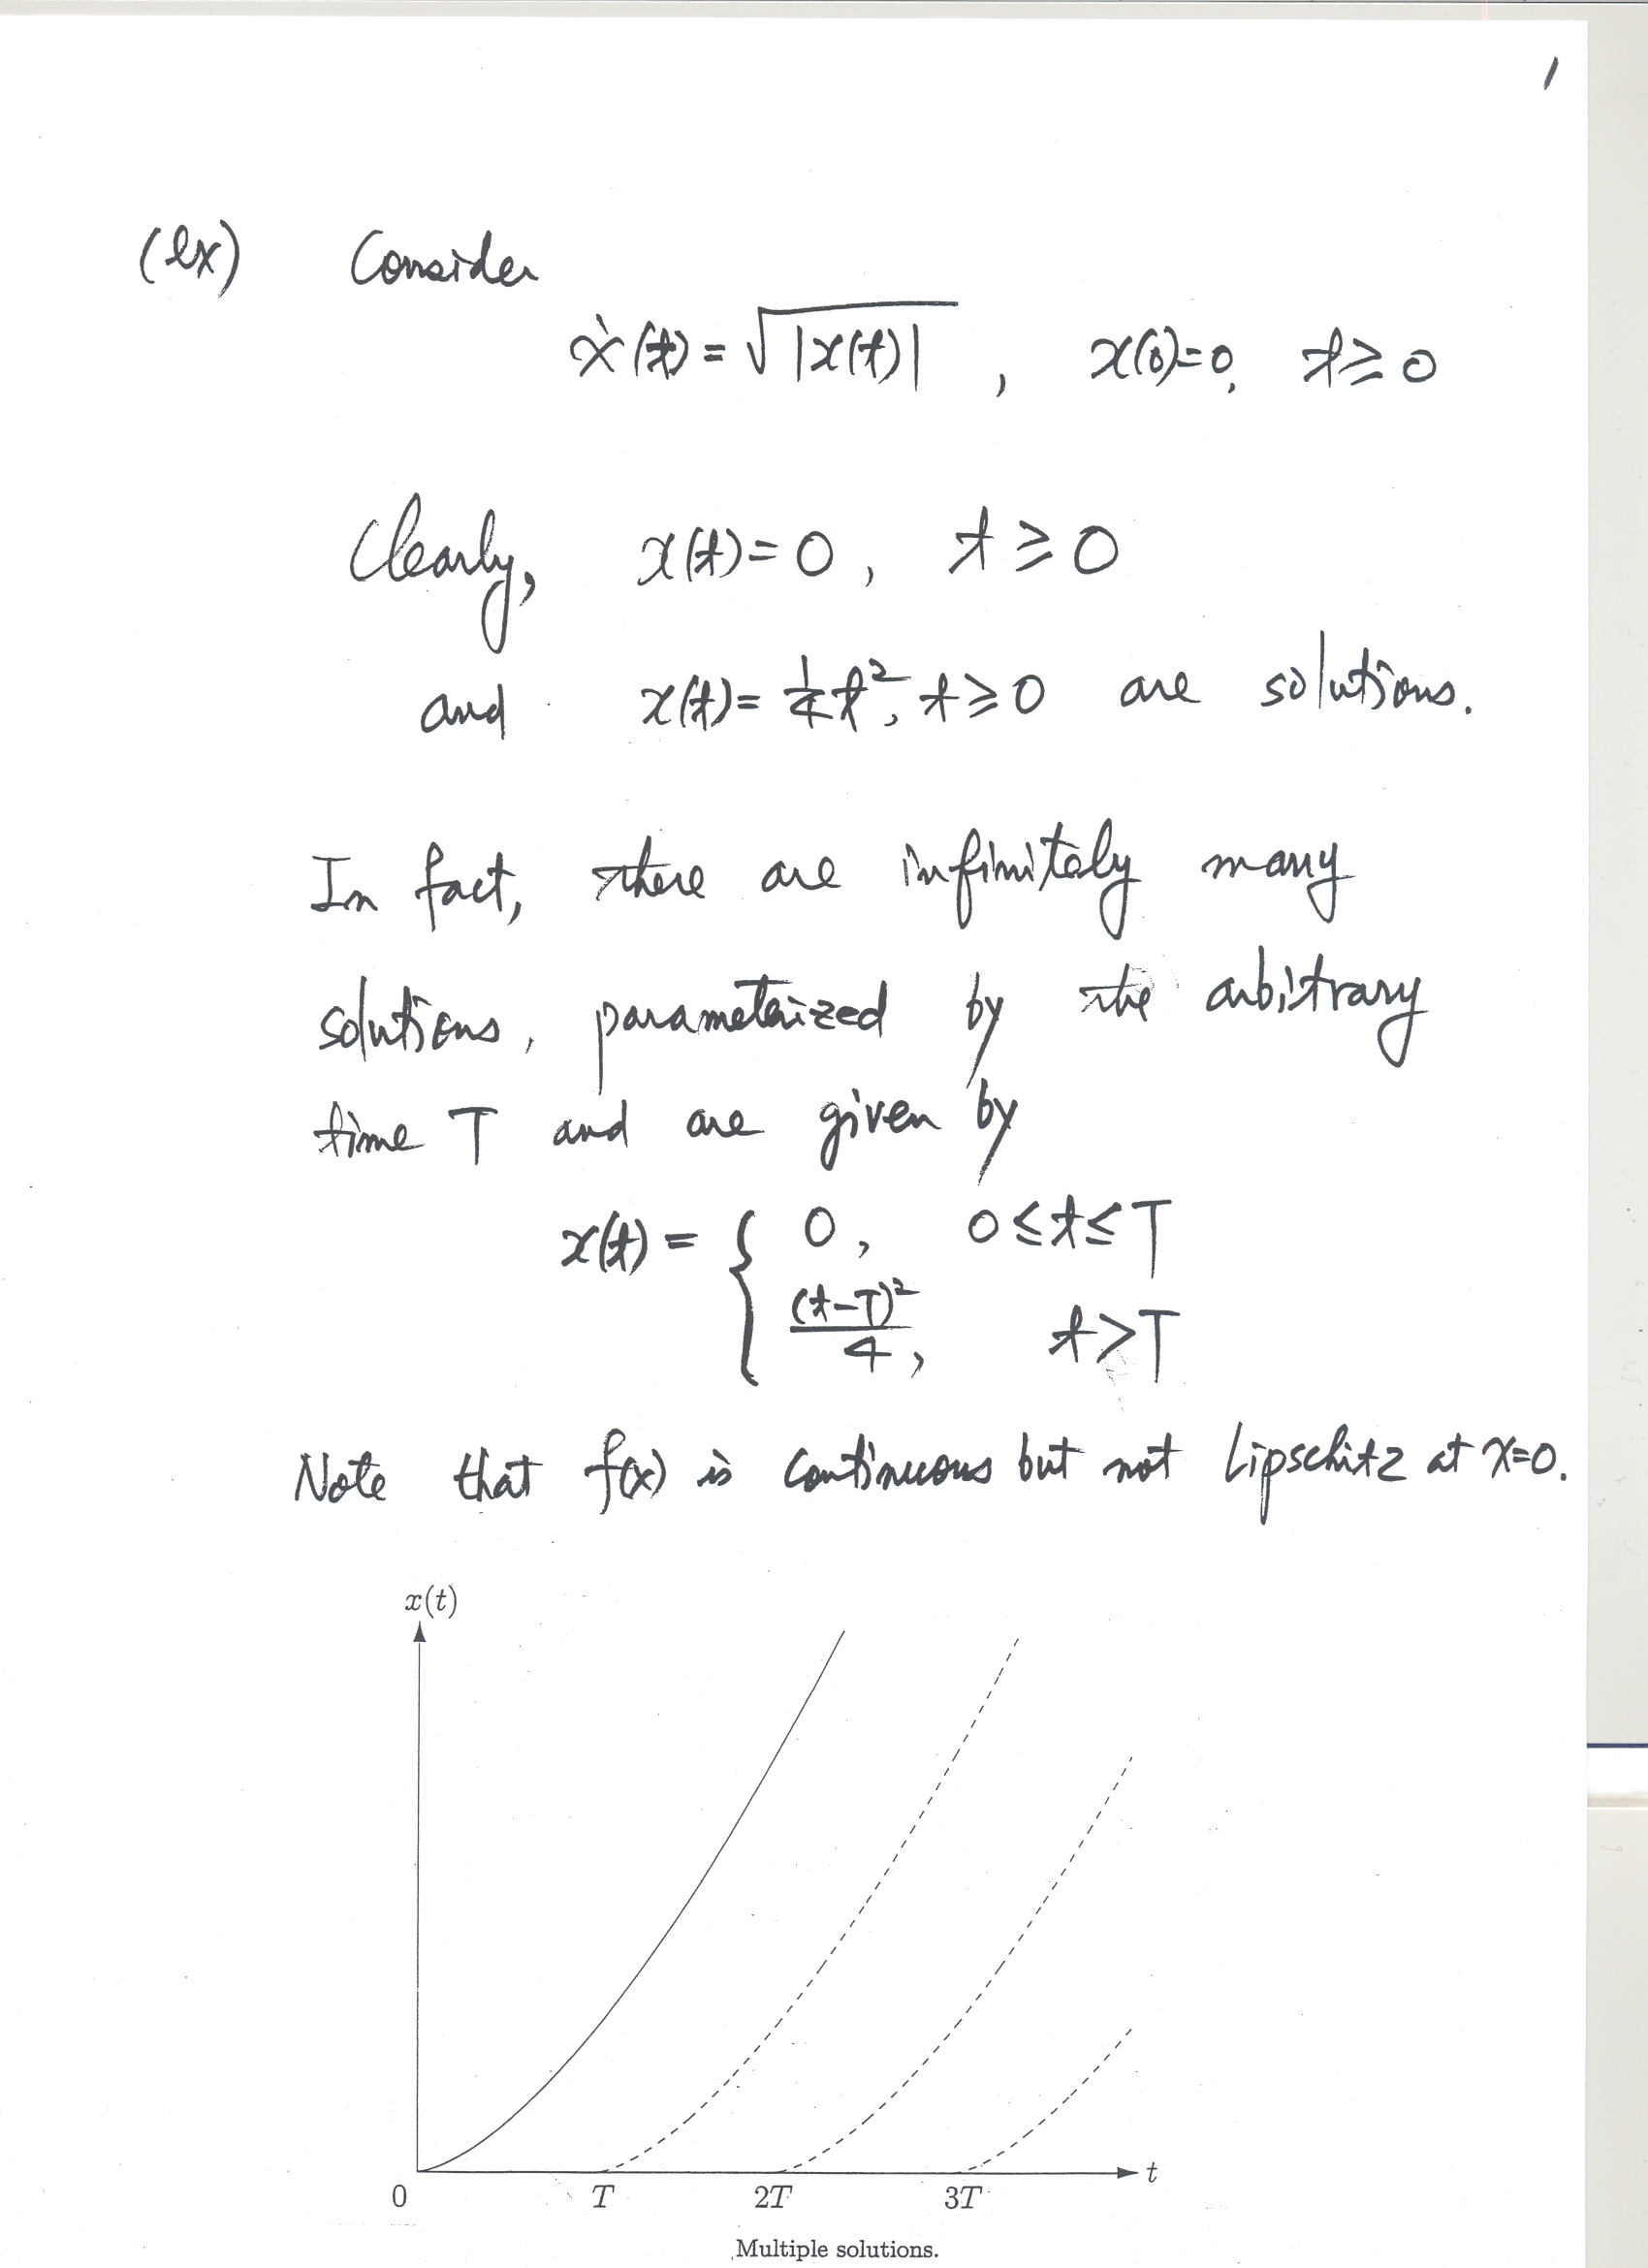 1
(ex) Consider
ẋ(t) = √|x(t)| , x(0)=0, t ≥ 0
Clearly, x(t) = 0 , t ≥ 0
and x(t) = 1/4 t², t ≥ 0 are solutions.
In fact, there are infinitely many
solutions, parameterized by the arbitrary
time T and are given by
x(t) = { 0 , 0 ≤ t ≤ T
(t-T)²/4 , t > T
Note that f(x) is continuous but not Lipschitz at x=0.
x(t)
t
0 T 2T 3T
Multiple solutions.